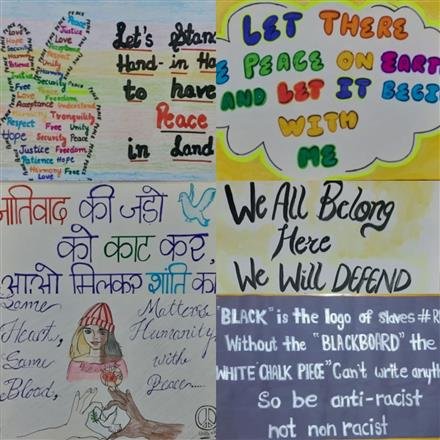 Peace
Justice
Love
Hope
Security
Unity
Justice
Free
Unity
Love
Peace
Freedom
Acceptance
Understand
Harmony
Tranquility
Respect
Free
Unity
Hope
Security
Peace
Justice
Freedom
Patience
Hope
Harmony
Free
Love
Let's Stand
Hand-in Ha
to have
Peace
in Land
LET THERE
E PEACE ON EARTH
AND LET IT BEGIN
WITH
ME
जातिवाद की जड़ो
को काट कर,
आओ मिलकर शांति का
Same
Heart,
Same
Blood,
Matters
Humanity
with
Peace....
We All Belong
Here
We Will DEFEND
"BLACK" is the logo of slaves #R
Without the "BLACKBOARD" the
WHITE CHALK PIECE" Can't write anyth
So be anti-racist
not non racist